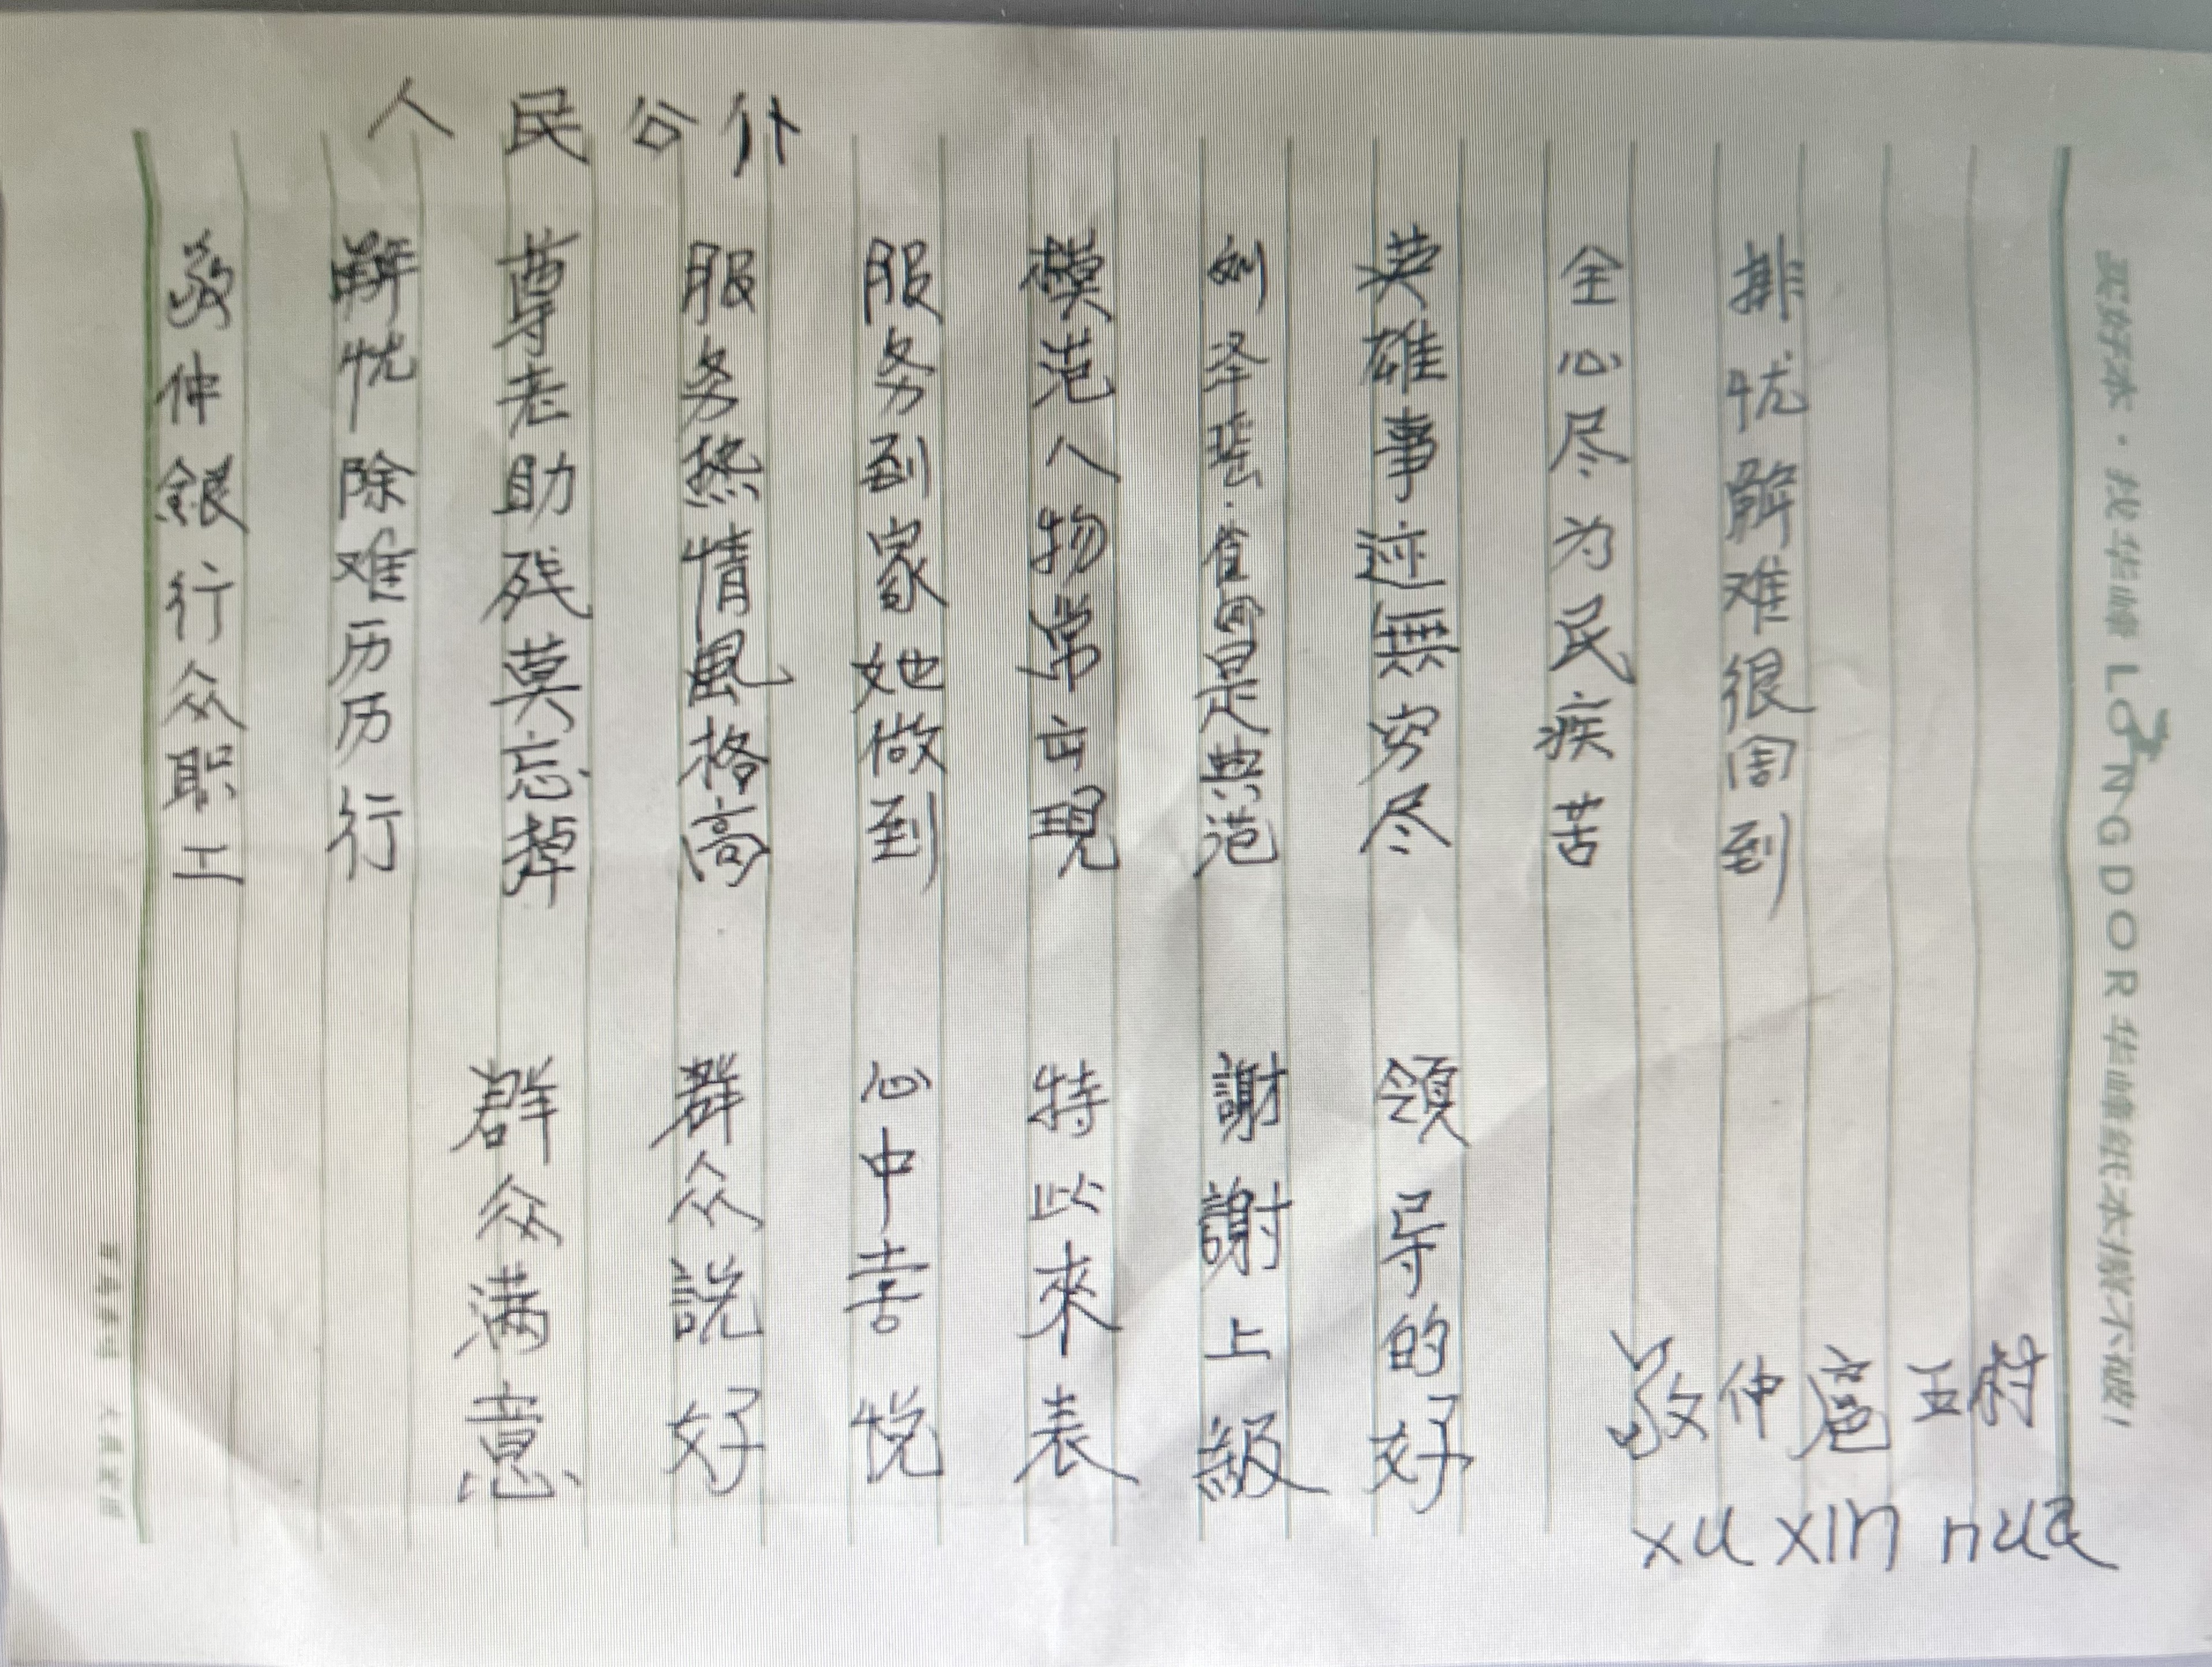 人民公仆
敬仲銀行众职工
解忧除难历历行
尊老助残莫忘掉
服务热情風格高
服务到家她做到
模范人物常出現
刘泽是典范
英雄事迹無穷尽
全心尽为民疾苦
排忧解难很周到
群众满意
群众説好
心中喜悦
特此來表
謝謝上級
領导的好
敬仲扈五村
xu xin hua
买好本·找华峰 LONGDOR 华峰纸本撕不破!